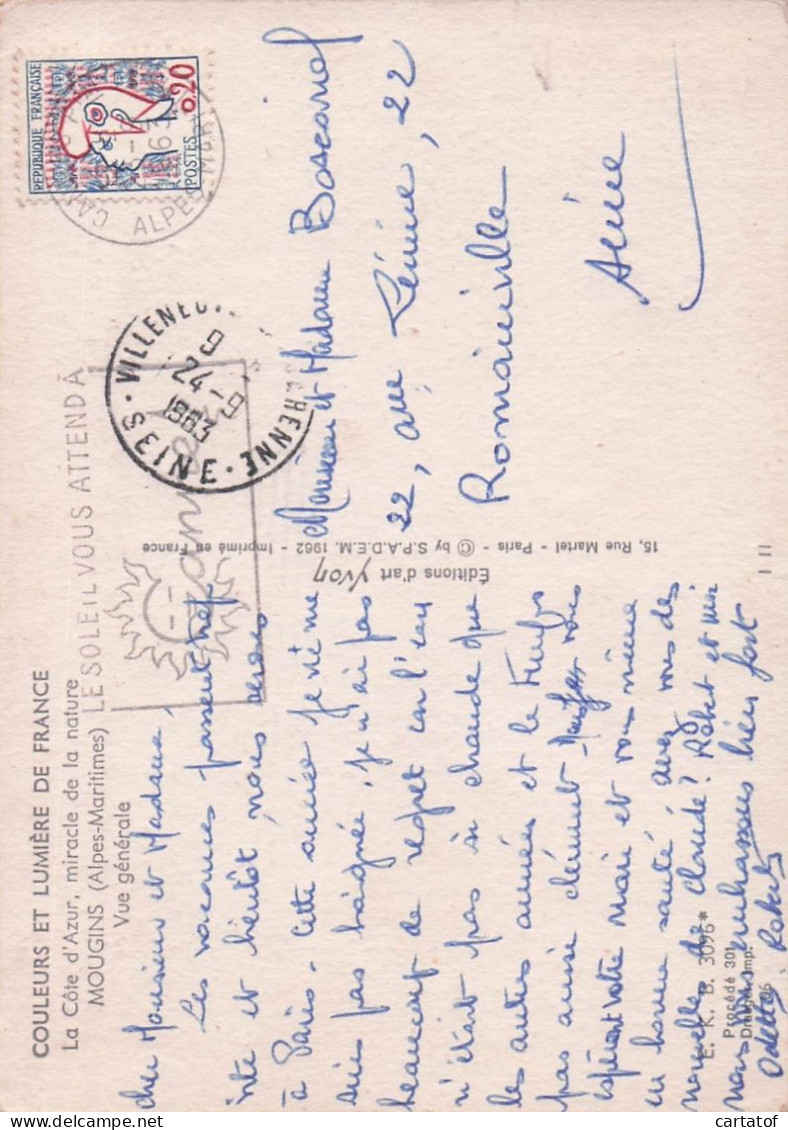 COULEURS ET LUMIÈRE DE FRANCE
La Côte d'Azur, miracle de la nature
MOUGINS (Alpes-Maritimes)
Vue générale
LE SOLEIL VOUS ATTEND À
Cher Monsieur et Madame,
Les vacances passent très
vite et bientôt nous serons
à Paris. Cette année je ne me
suis pas baignée, je n'ai pas
beaucoup de regret car l'eau
n'était pas si chaude que
les autres années et le temps
pas aussi clément. vous
espérant votre Mari et vous même
en bonne santé, avez vous des
nouvelles de Claude? Robert et moi
nous vous embrassons bien fort
Odette Robert
E. K. B. 3096*
Procédé 301
Imp.
Éditions d'art Yvon
15, Rue Martel - Paris - © by S.P.A.D.E.M. 1962 - Imprimé en France
REPUBLIQUE FRANÇAISE
0,20
POSTES
ALPES MAR
VILLENEU
9
24-9
1963
SEINE
ARENNE
Monsieur et Madame
22, ave Lénine, 22
Romainville
Seine
cartatof